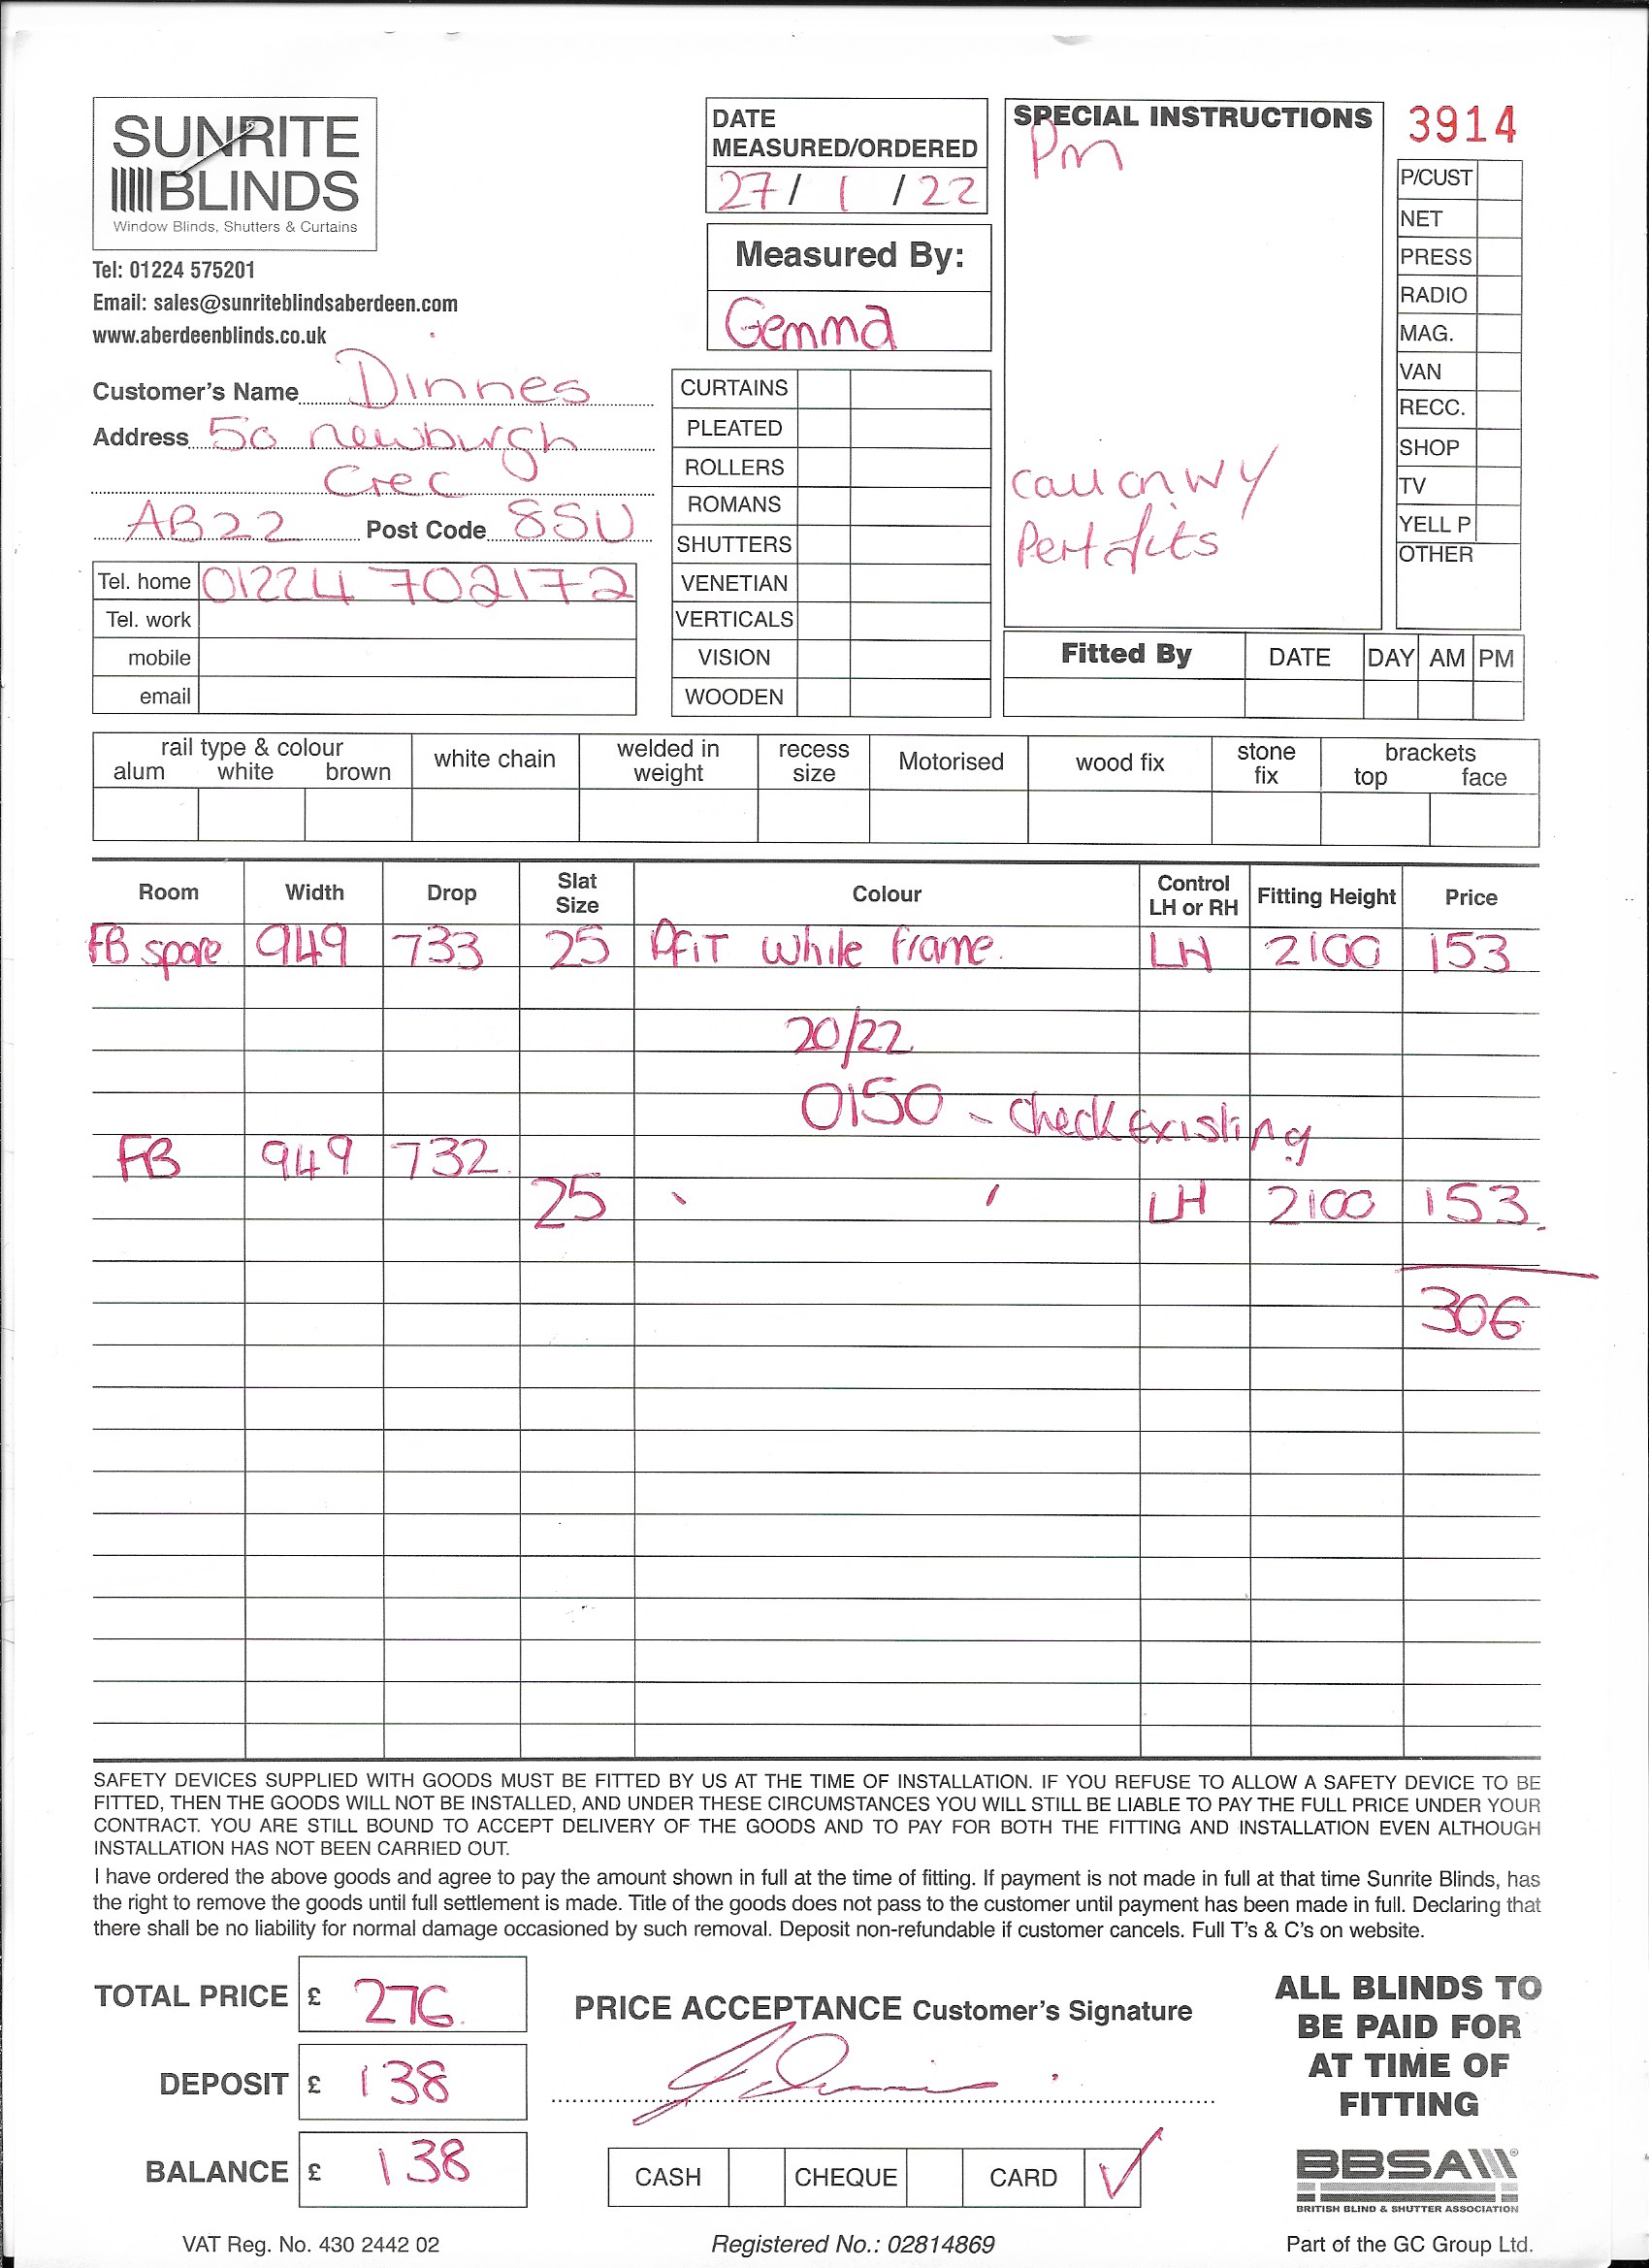 SUNRITE
BLINDS
Window Blinds, Shutters & Curtains
Tel: 01224 575201
Email: sales@sunriteblindsaberdeen.com
www.aberdeenblinds.co.uk
Customer's Name Dinnes
Address 50 newburgh
Crec
AB22 Post Code 8SU
Tel. home 01224 702172
Tel. work
mobile
email
DATE
MEASURED/ORDERED
27/ 1 /22
Measured By:
Gemma
CURTAINS
PLEATED
ROLLERS
ROMANS
SHUTTERS
VENETIAN
VERTICALS
VISION
WOODEN
SPECIAL INSTRUCTIONS
Pm
call on wy
Perfits
3914
P/CUST
NET
PRESS
RADIO
MAG.
VAN
RECC.
SHOP
TV
YELL P
OTHER
Fitted By DATE DAY AM PM
rail type & colour
alum white brown
white chain
welded in
weight
recess
size
Motorised
wood fix
stone
fix
brackets
top face
Room Width Drop Slat Size Colour Control LH or RH Fitting Height Price
FB spare 949 733 25 PFIT while frame. LH 2100 153
20/22
0150 - Check Existing
FB 949 732.
25 " " LH 2100 153.
306
SAFETY DEVICES SUPPLIED WITH GOODS MUST BE FITTED BY US AT THE TIME OF INSTALLATION. IF YOU REFUSE TO ALLOW A SAFETY DEVICE TO BE
FITTED, THEN THE GOODS WILL NOT BE INSTALLED, AND UNDER THESE CIRCUMSTANCES YOU WILL STILL BE LIABLE TO PAY THE FULL PRICE UNDER YOUR
CONTRACT. YOU ARE STILL BOUND TO ACCEPT DELIVERY OF THE GOODS AND TO PAY FOR BOTH THE FITTING AND INSTALLATION EVEN ALTHOUGH
INSTALLATION HAS NOT BEEN CARRIED OUT.
I have ordered the above goods and agree to pay the amount shown in full at the time of fitting. If payment is not made in full at that time Sunrite Blinds, has
the right to remove the goods until full settlement is made. Title of the goods does not pass to the customer until payment has been made in full. Declaring that
there shall be no liability for normal damage occasioned by such removal. Deposit non-refundable if customer cancels. Full T's & C's on website.
TOTAL PRICE £ 276.
DEPOSIT £ 138
BALANCE £ 138
PRICE ACCEPTANCE Customer's Signature
CASH CHEQUE CARD ✓
ALL BLINDS TO
BE PAID FOR
AT TIME OF
FITTING
BBSA
BRITISH BLIND & SHUTTER ASSOCIATION
VAT Reg. No. 430 2442 02
Registered No.: 02814869
Part of the GC Group Ltd.